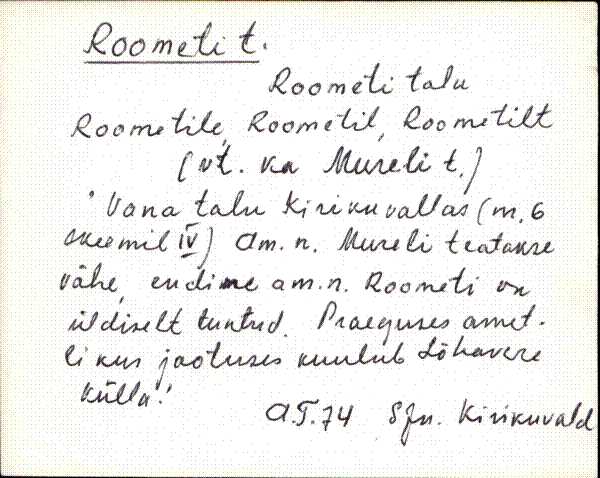 Roometi t.
Roometi talu
Roometile, Roometil, Roometilt
(vt. ka Mureli t.)
"Vana talu Kirikuvallas (m. 6
skeemil IV) Am. n. Mureli teatakse
vähe, endine am. n. Roometi on
üldiselt tuntud. Praeguses amet-
likus jaotuses kuulub Lõhavere
külla".
A.T. 74 SJn. Kirikuvald